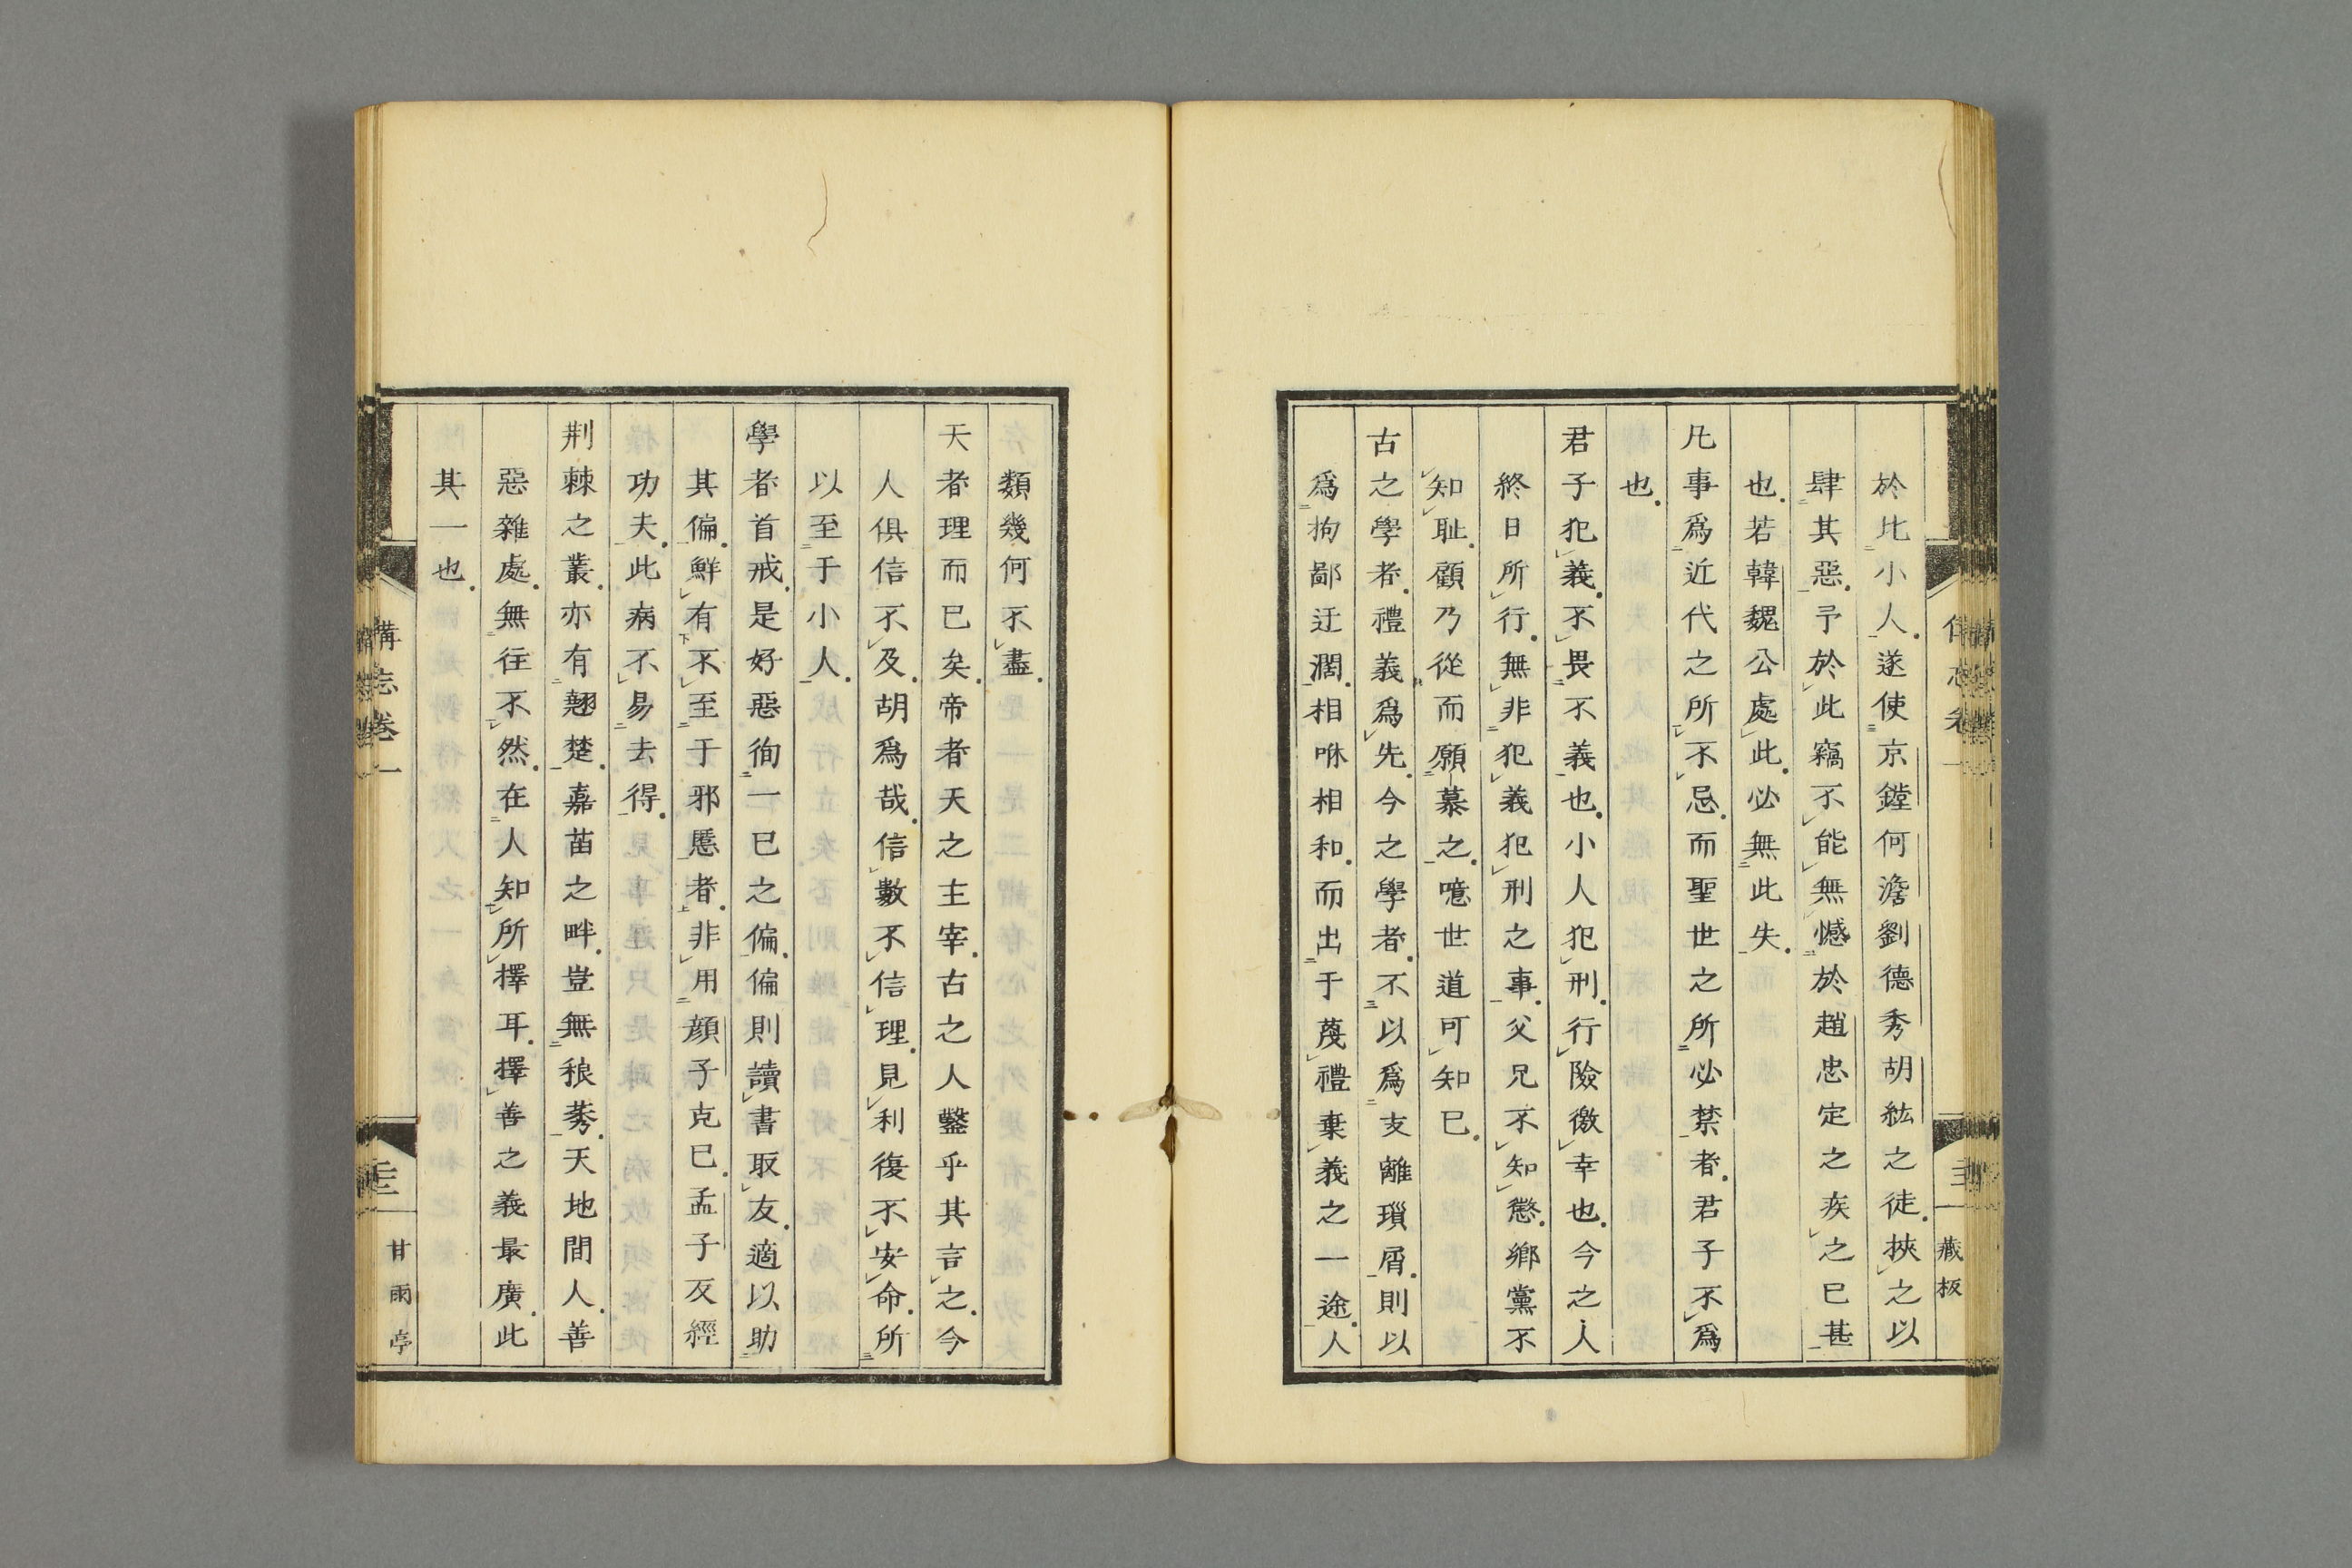 於比小人遂使京鏜何澹劉德秀胡紘之徒挾之以
肆其惡予於此竊不能無憾於趙忠定之疾之已甚
也若韓魏公處此必無此失
凡事爲近代之所不忌而聖世之所必禁者君子不爲
也
君子犯義不畏不義也小人犯刑行險徼幸也今之人
終日所行無非犯義犯刑之事父兄不知懲鄉黨不
知耻顧乃從而願慕之噫世道可知已
古之學者禮義爲先今之學者不以爲支離瑣屑則以
爲拘鄙迂濶相咻相和而出于蔑禮棄義之一途人
藏板
類幾何不盡
天者理而已矣帝者天之主宰古之人鑿乎其言之今
人俱信不及胡爲哉信數不信理見利復不安命所
以至于小人
學者首戒是好惡徇一已之偏偏則讀書取友適以助
其偏鮮有不至于邪慝者非用顔子克已孟子反經
功夫此病不易去得
荆棘之叢亦有翹楚嘉苗之畔豈無稂莠天地間人善
惡雜處無往不然在人知所擇耳擇善之義最廣此
其一也
備志卷一
甘雨亭